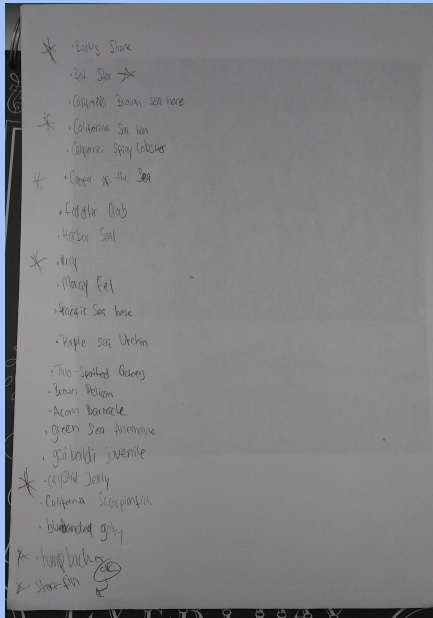 • Basking Shark
• Bat Star
• California Brown sea hare
• California Sea lion
• California Spiny Lobster
• of the Sea
• Fiddler Crab
• Harbor Seal
• Moray Eel
• Sea
• Purple sea Urchin
• Two-Spotted
• Brown Pelican
• Acorn Barnacle
• green Sea Anemone
• garibaldi juvenile
• crystal Jelly
• California Scorpionfish
• goby
• humpback
short fin